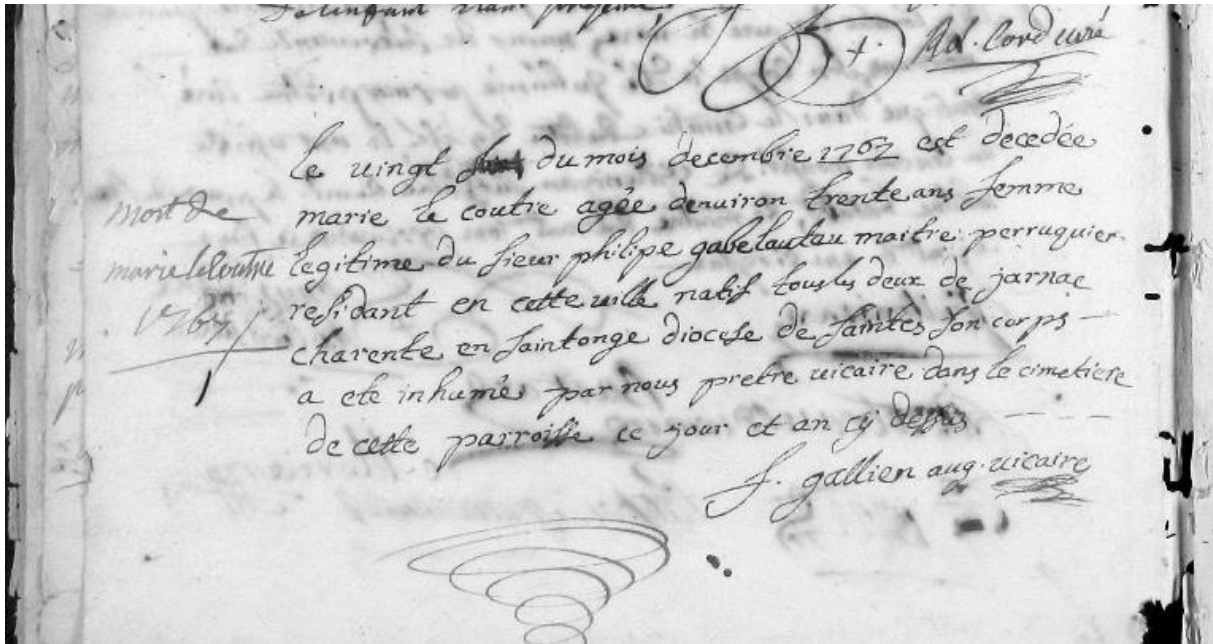 Ad. Corduré
le vingt du mois decembre 1767 est decedée
marie le coutre agée denviron trente ans femme
legitime du sieur philipe gabelauteau maitre perruquier
residant en cette ville natif tous les deux de jarnac
charente en saintonge diocese de saintes son corps
a eté inhumé par nous pretre vicaire dans le cimetiere
de cette parroisse ce jour et an cy dessus
f. gallien aug. vicaire
mort de
marie le coutre
1767